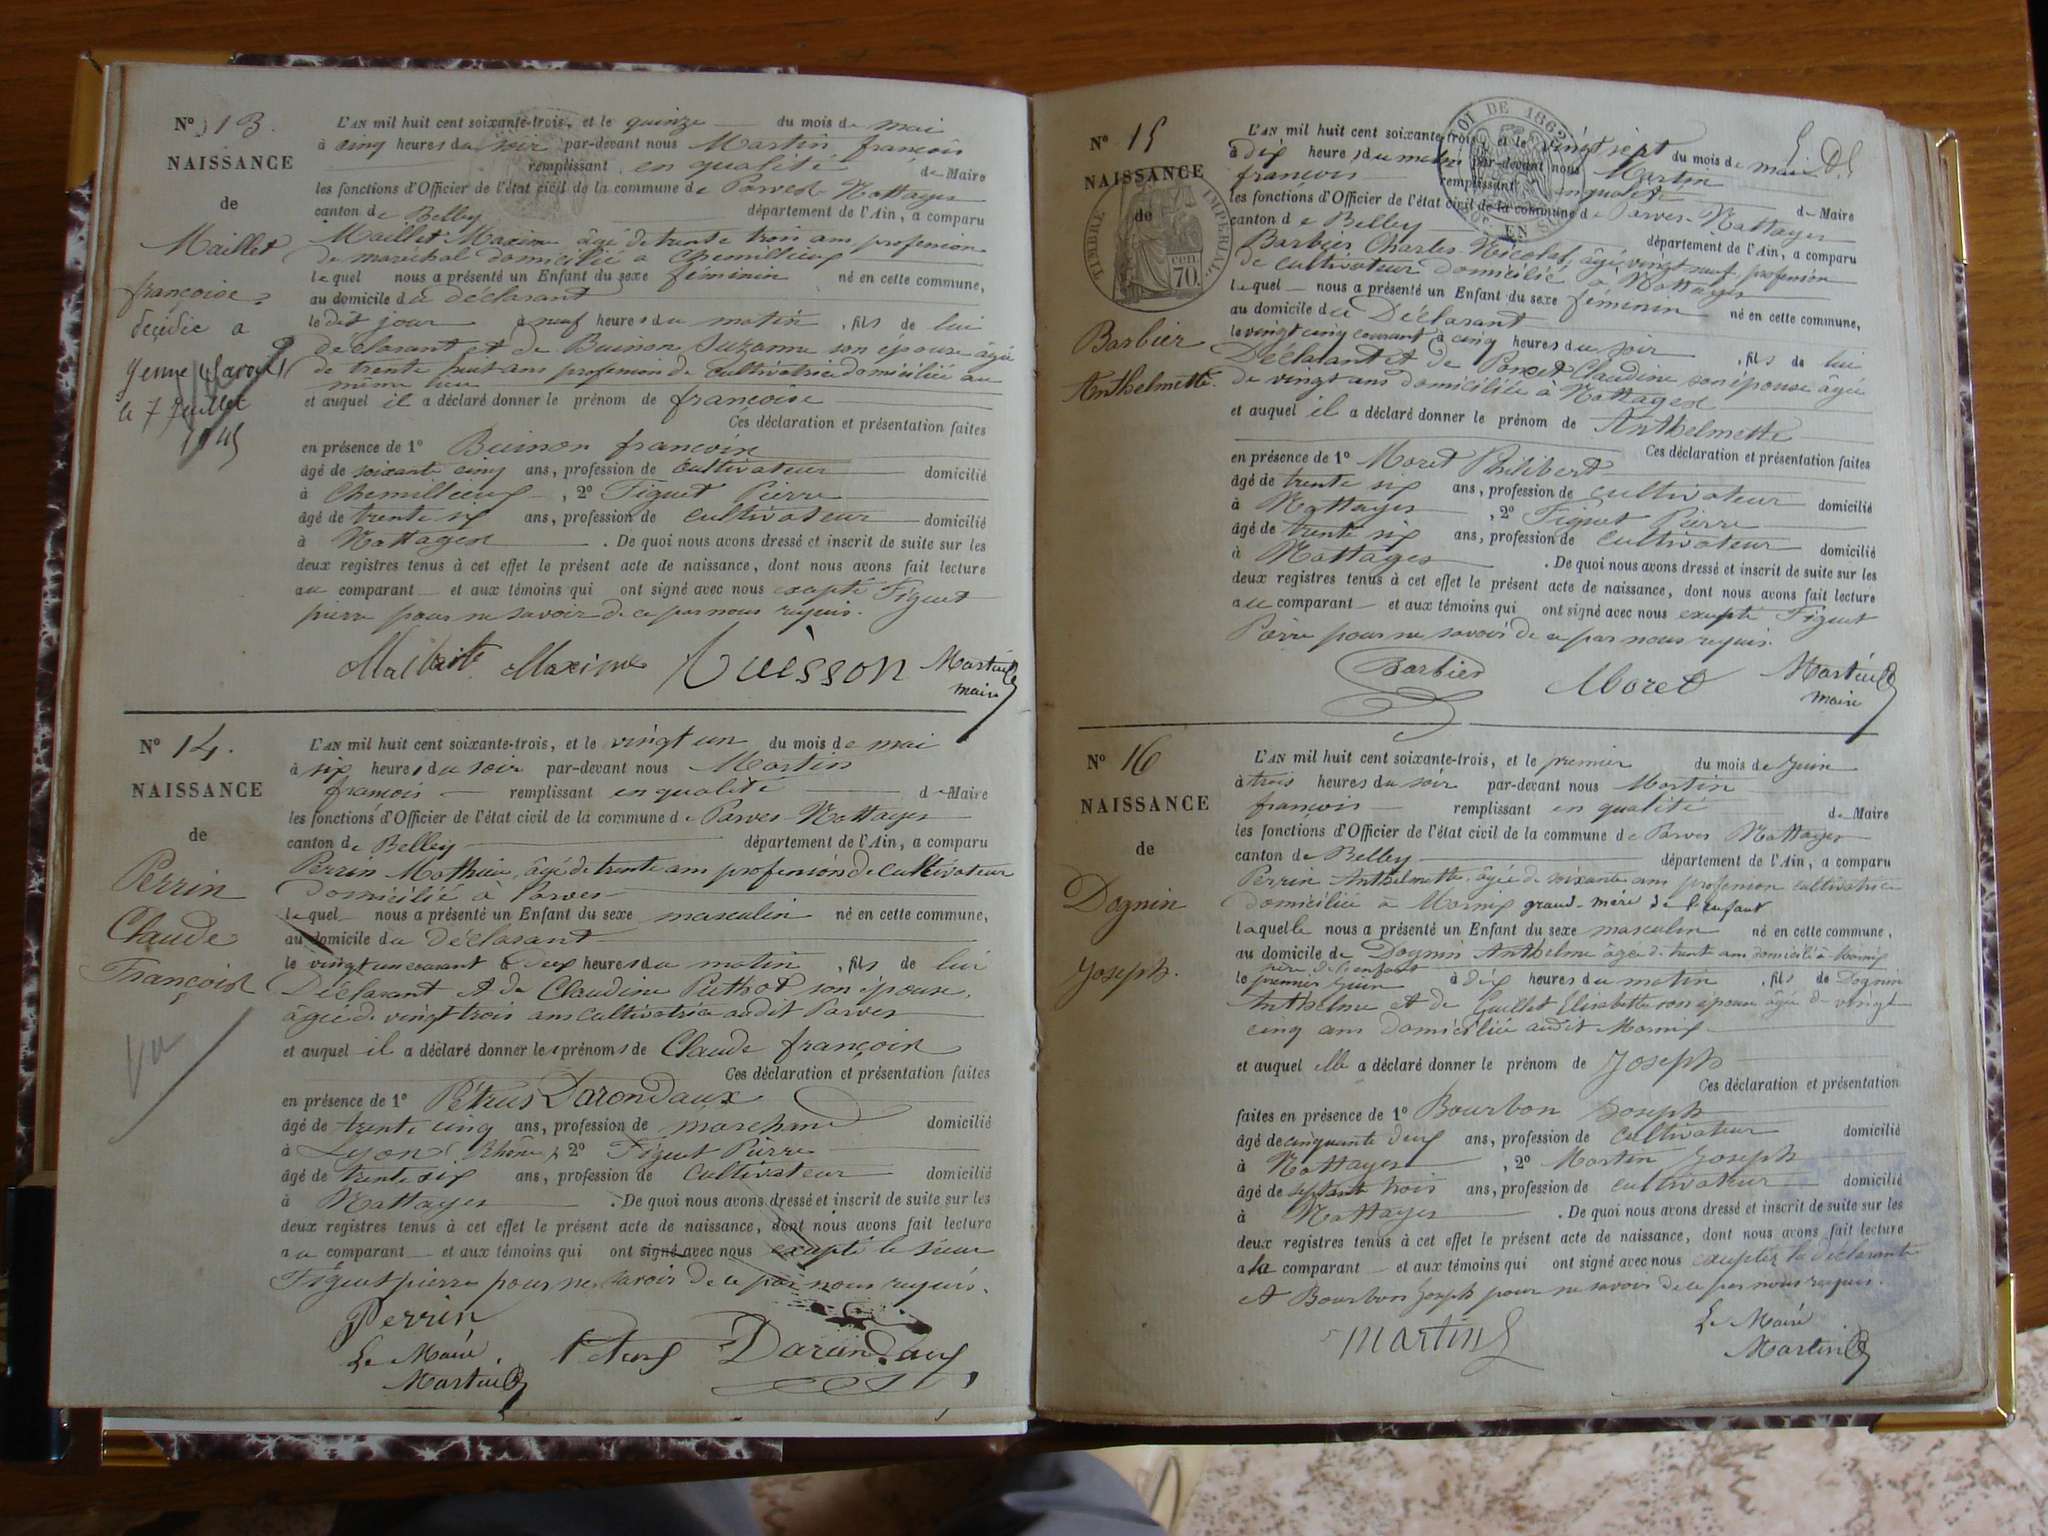 N° 13.
NAISSANCE
de
Maillet
françoise
decédée a
Yenne (Savoie)
le 7 Juillet
L'AN mil huit cent soixante-trois, et le quinze du mois de mai
à cinq heures du soir par-devant nous Martin françois
remplissant en qualité de Maire
les fonctions d'Officier de l'état civil de la commune de Parves Nattages
canton de Belley département de l'Ain, a comparu
Maillet Maxime âgé de trente trois ans profession
de maréchal domicilié à Chemillieux
lequel nous a présenté un Enfant du sexe féminin né en cette commune,
au domicile du déclarant
le dit jour à neuf heures du matin, fils de lui
déclarant et de Buinon Suzanne son épouse âgée
de trente huit ans profession de cultivatrice domiciliée au
même lieu
et auquel il a déclaré donner le prénom de françoise
Ces déclaration et présentation faites
en présence de 1° Buinon françois
âgé de soixante cinq ans, profession de cultivateur domicilié
à Chemillieux, 2° Figuet Pierre
âgé de trente six ans, profession de cultivateur domicilié
à Nattages. De quoi nous avons dressé et inscrit de suite sur les
deux registres tenus à cet effet le présent acte de naissance, dont nous avons fait lecture
au comparant et aux témoins qui ont signé avec nous excepté Figuet
pierre pour ne savoir de ce par nous requis.
Maxime Martin
maire
N° 14.
NAISSANCE
de
Perrin
Claude
François
Vu
L'AN mil huit cent soixante-trois, et le vingt un du mois de mai
à six heures du soir par-devant nous Martin
françois remplissant en qualité de Maire
les fonctions d'Officier de l'état civil de la commune de Parves Nattages
canton de Belley département de l'Ain, a comparu
Perrin Mathieu, âgé de trente ans profession de cultivateur
domicilié à Parves
lequel nous a présenté un Enfant du sexe masculin né en cette commune,
au domicile du déclarant
le vingt un courant à deux heures du matin, fils de lui
Déclarant et de Claudine Puthod son épouse,
âgée de vingt trois ans cultivatrice audit Parves
et auquel il a déclaré donner les prénoms de Claude françois
Ces déclaration et présentation faites
en présence de 1° Pétrus Darondaux
âgé de trente cinq ans, profession de marchand domicilié
à Lyon (Rhône), 2° Figuet Pierre
âgé de trente six ans, profession de cultivateur domicilié
à Nattages. De quoi nous avons dressé et inscrit de suite sur les
deux registres tenus à cet effet le présent acte de naissance, dont nous avons fait lecture
au comparant et aux témoins qui ont signé avec nous excepté le sieur
Figuet pierre pour ne savoir de ce par nous requis.
Perrin
Le Maire
Martin
N° 15
NAISSANCE
de
TIMBRE IMPERIAL
70. CEN
LOI DE 1862
Barbier
Anthelmette
L'AN mil huit cent soixante-trois, et le vingt sept du mois de mai
à dix heures du matin par-devant nous Martin
françois remplissant en qualité de Maire
les fonctions d'Officier de l'état civil de la commune de Parves-Nattages
canton de Belley département de l'Ain, a comparu
Barbier Charles Nicolas, âgé vingt neuf, profession
de cultivateur domicilié à Nattages
lequel nous a présenté un Enfant du sexe féminin né en cette commune,
au domicile du Déclarant
le vingt cinq courant à cinq heures du soir, fils de lui
Déclarant et de Poncet Claudine son épouse âgée
de vingt ans domiciliée à Nattages
et auquel il a déclaré donner le prénom de Anthelmette
Ces déclaration et présentation faites
en présence de 1° Moret Philibert
âgé de trente six ans, profession de cultivateur domicilié
à Nattages, 2° Figuet Pierre
âgé de trente six ans, profession de cultivateur domicilié
à Nattages. De quoi nous avons dressé et inscrit de suite sur les
deux registres tenus à cet effet le présent acte de naissance, dont nous avons fait lecture
au comparant et aux témoins qui ont signé avec nous excepté Figuet
Pierre pour ne savoir de ce par nous requis.
Barbier Moret Martin
maire
N° 16
NAISSANCE
de
Dognin
Joseph.
L'AN mil huit cent soixante-trois, et le premier du mois de Juin
à trois heures du soir par-devant nous Martin
françois remplissant en qualité de Maire
les fonctions d'Officier de l'état civil de la commune de Parves Nattages
canton de Belley département de l'Ain, a comparu
Perrin Anthelmette âgée de soixante ans profession cultivatrice
domiciliée à Mornix grand-mère de l'enfant
laquelle nous a présenté un Enfant du sexe masculin né en cette commune,
au domicile de Dognin Anthelme âgé de trent ans domicilié à Mornix
père de l'enfant
le premier Juin à dix heures du matin, fils de Dognin
Anthelme et de Guillet Elisabeth son épouse âgée de vingt
cinq ans domiciliée audit Mornix
et auquel elle a déclaré donner le prénom de Joseph
Ces déclaration et présentation
faites en présence de 1° Bourbon Joseph
âgé de cinquante deux ans, profession de cultivateur domicilié
à Nattages, 2° Martin Joseph
âgé de septante trois ans, profession de cultivateur domicilié
à Nattages. De quoi nous avons dressé et inscrit de suite sur les
deux registres tenus à cet effet le présent acte de naissance, dont nous avons fait lecture
a la comparant et aux témoins qui ont signé avec nous exceptés la déclarante
et Bourbon Joseph pour ne savoir de ce par nous requis.
Martin
Le Maire
Martin